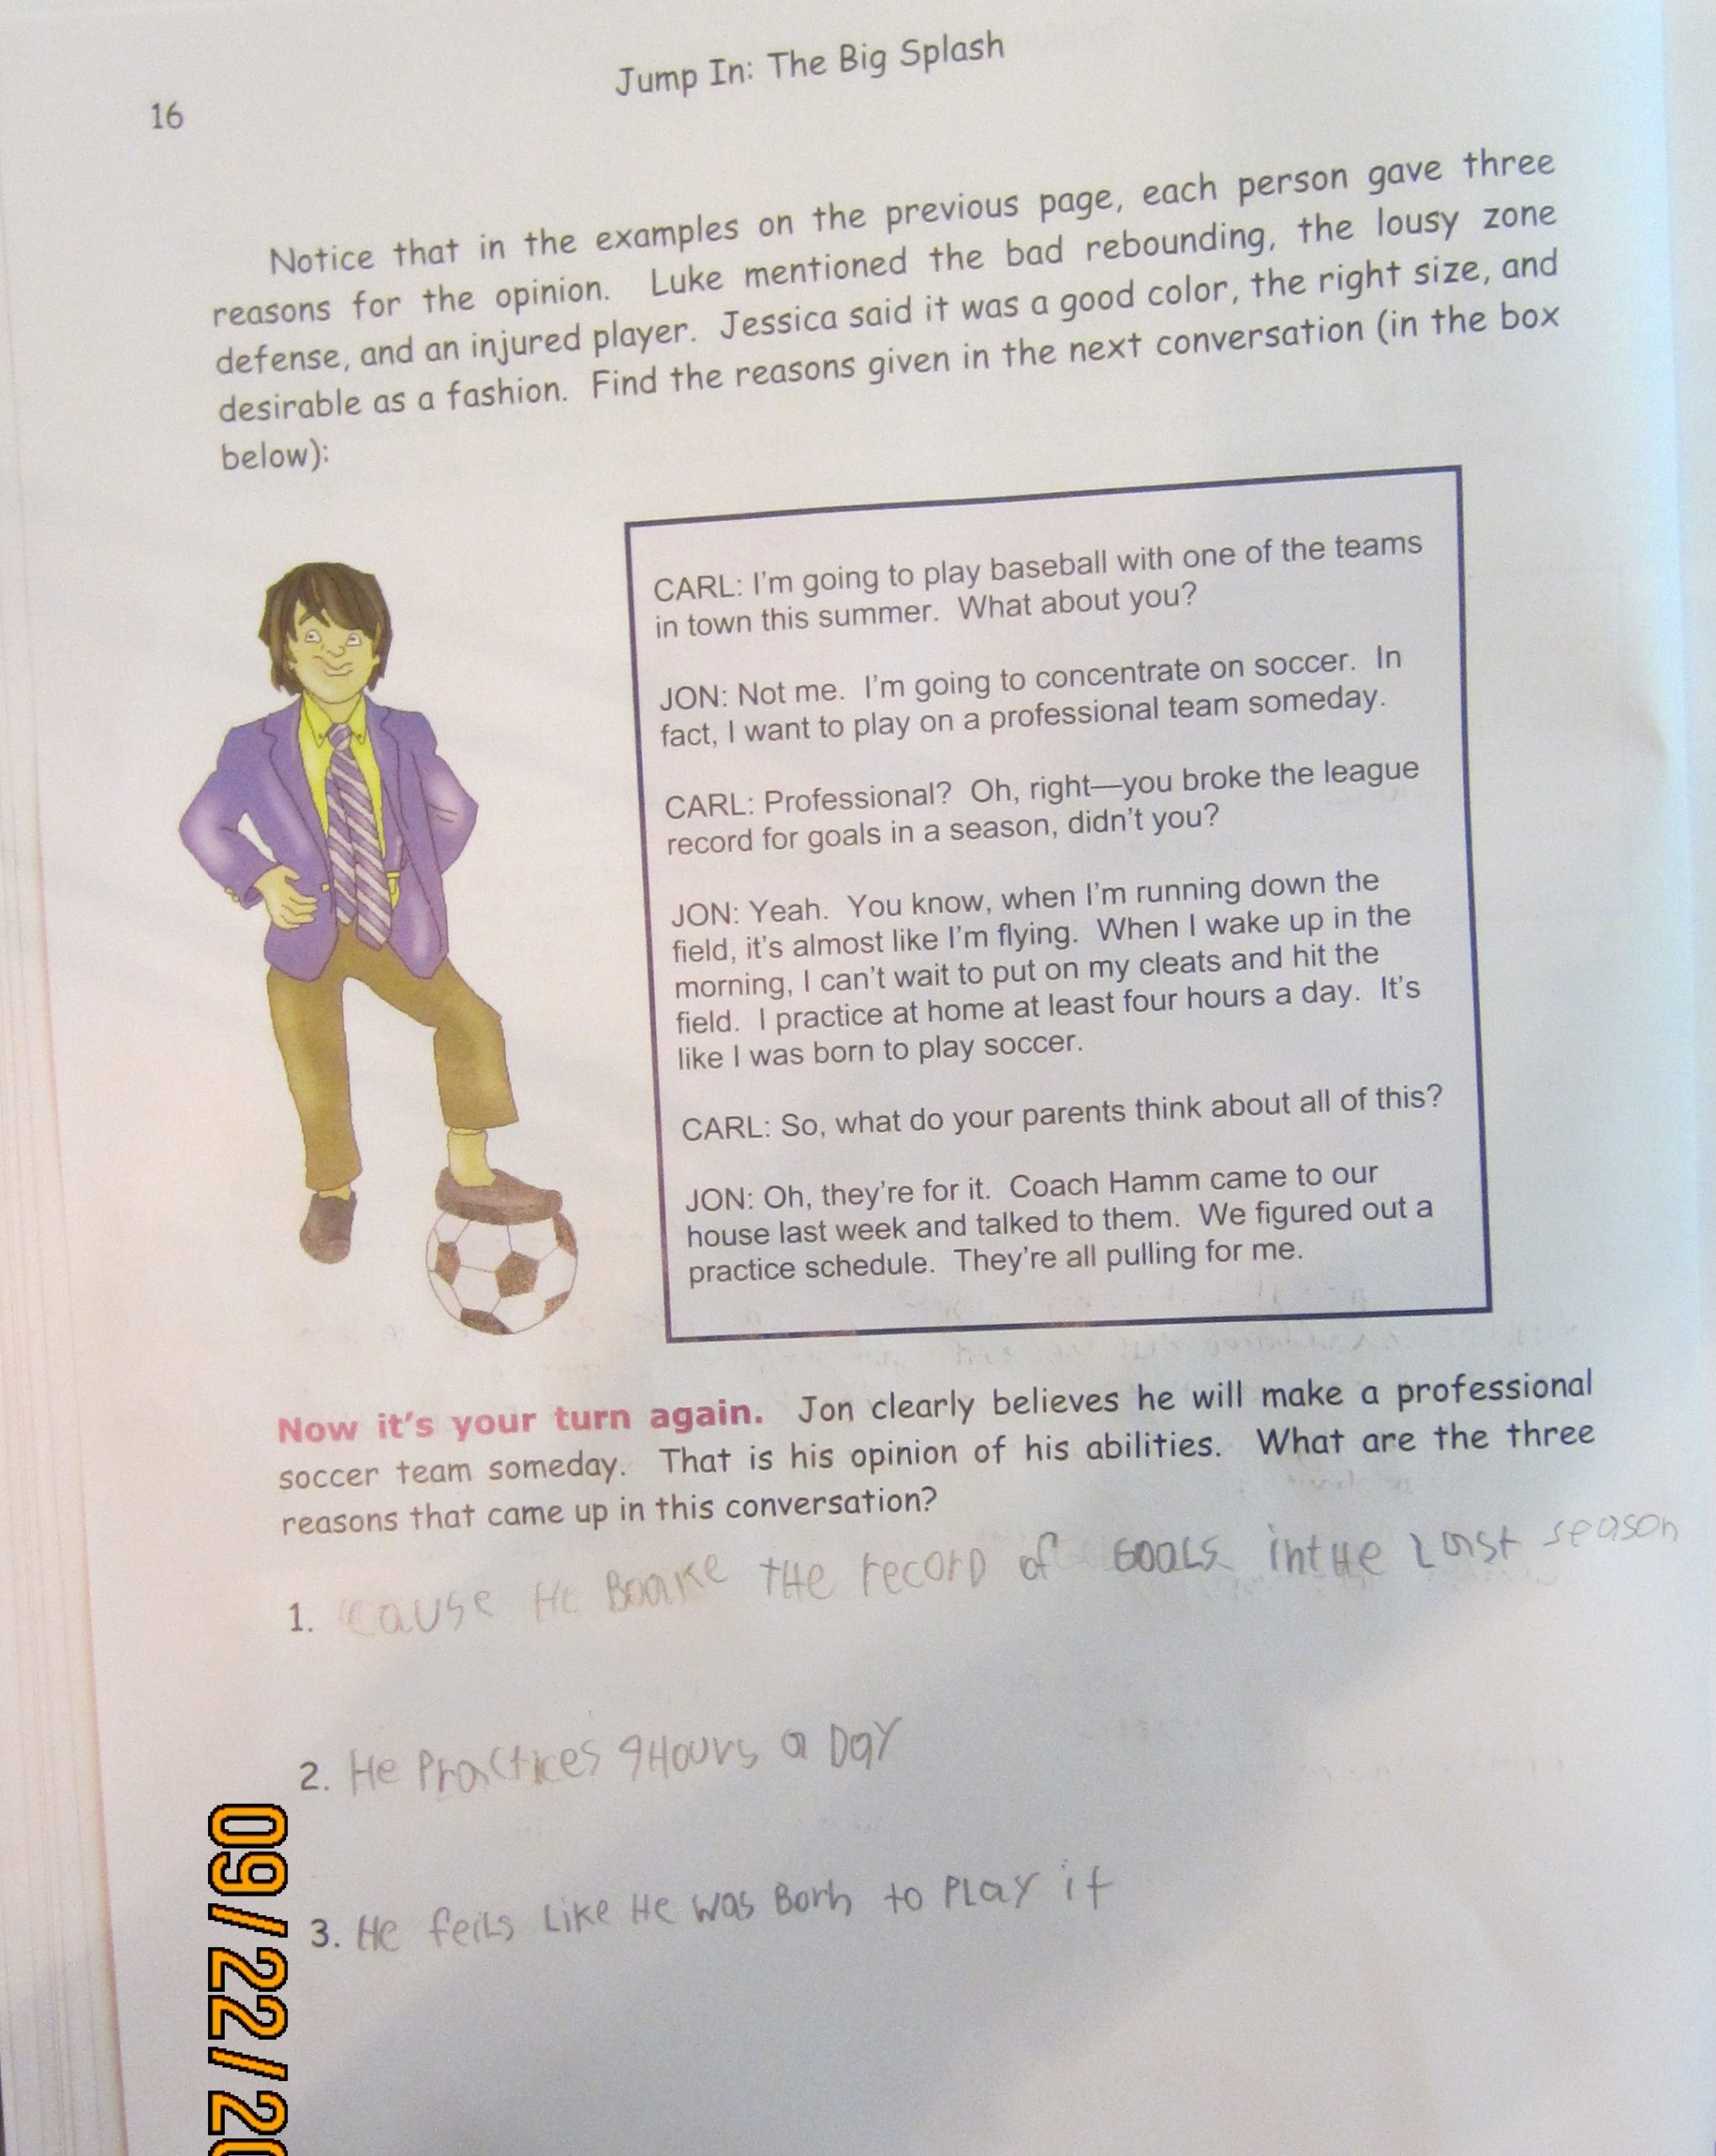 Jump In: The Big Splash
16
Notice that in the examples on the previous page, each person gave three
reasons for the opinion. Luke mentioned the bad rebounding, the lousy zone
defense, and an injured player. Jessica said it was a good color, the right size, and
desirable as a fashion. Find the reasons given in the next conversation (in the box
below):
CARL: I'm going to play baseball with one of the teams
in town this summer. What about you?
JON: Not me. I'm going to concentrate on soccer. In
fact, I want to play on a professional team someday.
CARL: Professional? Oh, right—you broke the league
record for goals in a season, didn't you?
JON: Yeah. You know, when I'm running down the
field, it's almost like I'm flying. When I wake up in the
morning, I can't wait to put on my cleats and hit the
field. I practice at home at least four hours a day. It's
like I was born to play soccer.
CARL: So, what do your parents think about all of this?
JON: Oh, they're for it. Coach Hamm came to our
house last week and talked to them. We figured out a
practice schedule. They're all pulling for me.
Now it's your turn again. Jon clearly believes he will make a professional
soccer team someday. That is his opinion of his abilities. What are the three
reasons that came up in this conversation?
1. cause He Boake tHe recorD of GOALS intHe Last season
2. He Practices 9 Hours a Day
3. He feils Like He was Born to PLay it
09/22/20